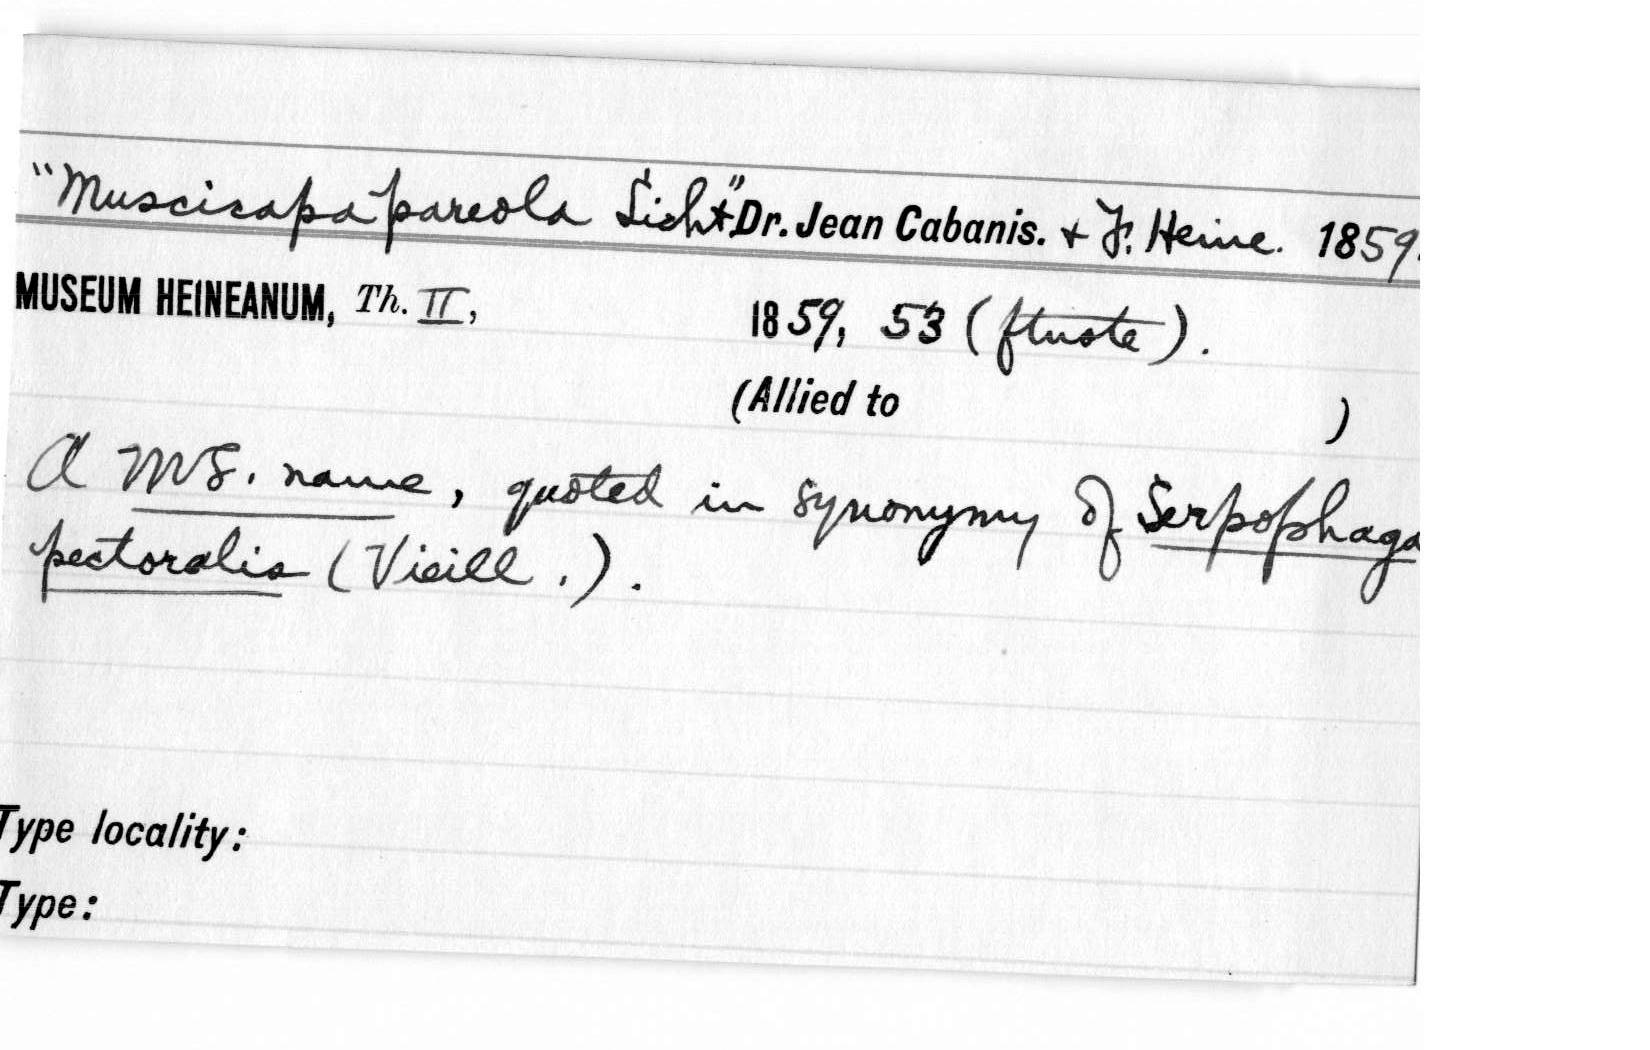 "Muscicapa pareola Licht" Dr. Jean Cabanis. & F. Heine. 1859.
MUSEUM HEINEANUM, Th. II, 1859, 53 (ftnote).
(Allied to )
A MS. name, quoted in synonymy of Serpophaga
pectoralis (Vieill.).
Type locality:
Type: